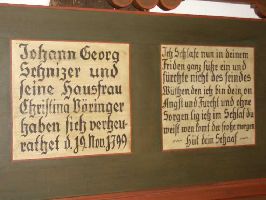 Johann Georg
Schnizer und
seine Hausfrau
Christina Vöringer
haben sich verheu-
rathet d. 19. Nov. 1799
Ich Schlafe nun in deinem
Friden ganz süße ein und
fürchte nicht des feindes
Wüthen, den ich bin dein, on
Angst und Furcht und ohne
Sorgen lig ich im Schlaf du
weist wen komt der frohe morgen
Hüt dein Schaaf